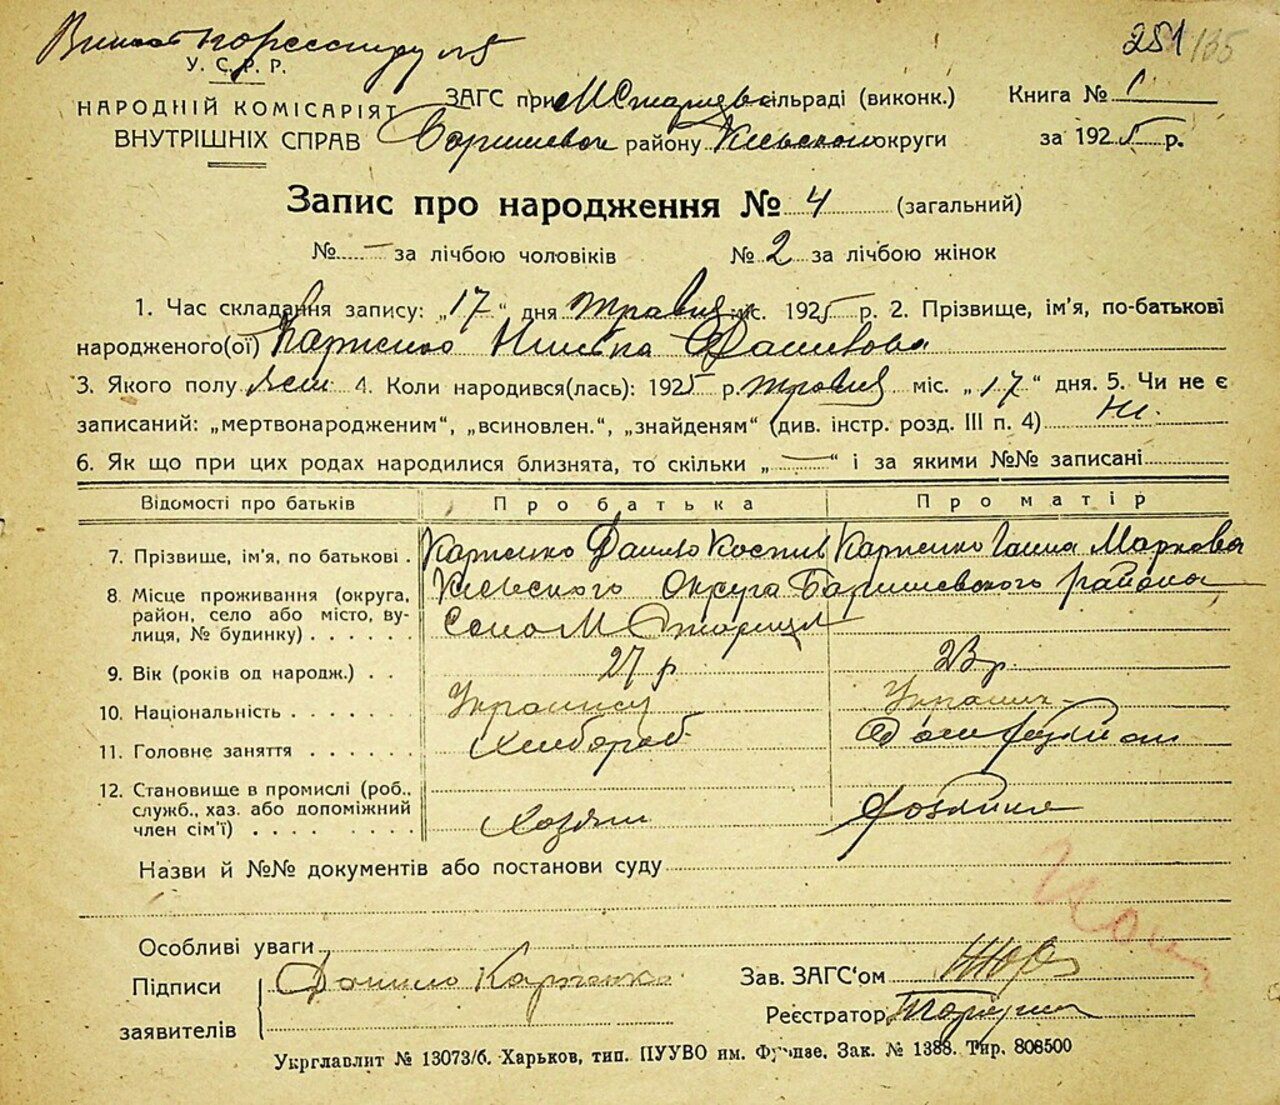 У. С. Р. Р.
НАРОДНІЙ КОМІСАРІЯТ
ВНУТРІШНІХ СПРАВ
251 135
ЗАГС при М Старицькій сільраді (виконк.) Книга № 1
району округи за 1925 р.
Запис про народження № 4 (загальний)
№ — за лічбою чоловіків № 2 за лічбою жінок
1. Час складання запису: „17“ дня травня міс. 1925 р. 2. Прізвище, ім'я, по-батькові
народженого(ої) Карпенко Данилова
3. Якого полу жен 4. Коли народився(лась): 1925 р. травня міс. „17“ дня. 5. Чи не є
записаний: „мертвонародженим“, „всиновлен.“, „знайденям“ (див. інстр. розд. III п. 4) Ні.
6. Як що при цих родах народилися близнята, то скільки „—“ і за якими №№ записані
Відомості про батьків Про батька Про матір
7. Прізвище, ім'я, по батькові . Карпенко Данило Костив Карпенко Ганна Маркова
8. Місце проживання (округа, район, село або місто, вулиця, № будинку) . . . . . . Киевского Округа Баришевского района
Село М Старица
9. Вік (років од народж.) . . 27 р 23 р.
10. Національність . . . . . . . Украинец Украин
11. Головне заняття . . . . . . Хлибороб
12. Становище в промислі (роб., служб., хаз. або допоміжний член сім'ї) . . . . . . . . Хозяин Хозяйка
Назви й №№ документів або постанови суду
Особливі уваги
Підписи заявителів Данило Карпенко
Зав. ЗАГС'ом
Реєстратор
Укрглавлит № 13073/б. Харьков, тип. ПУУВО им. Фрунзе. Зак. № 1388. Тир. 808500